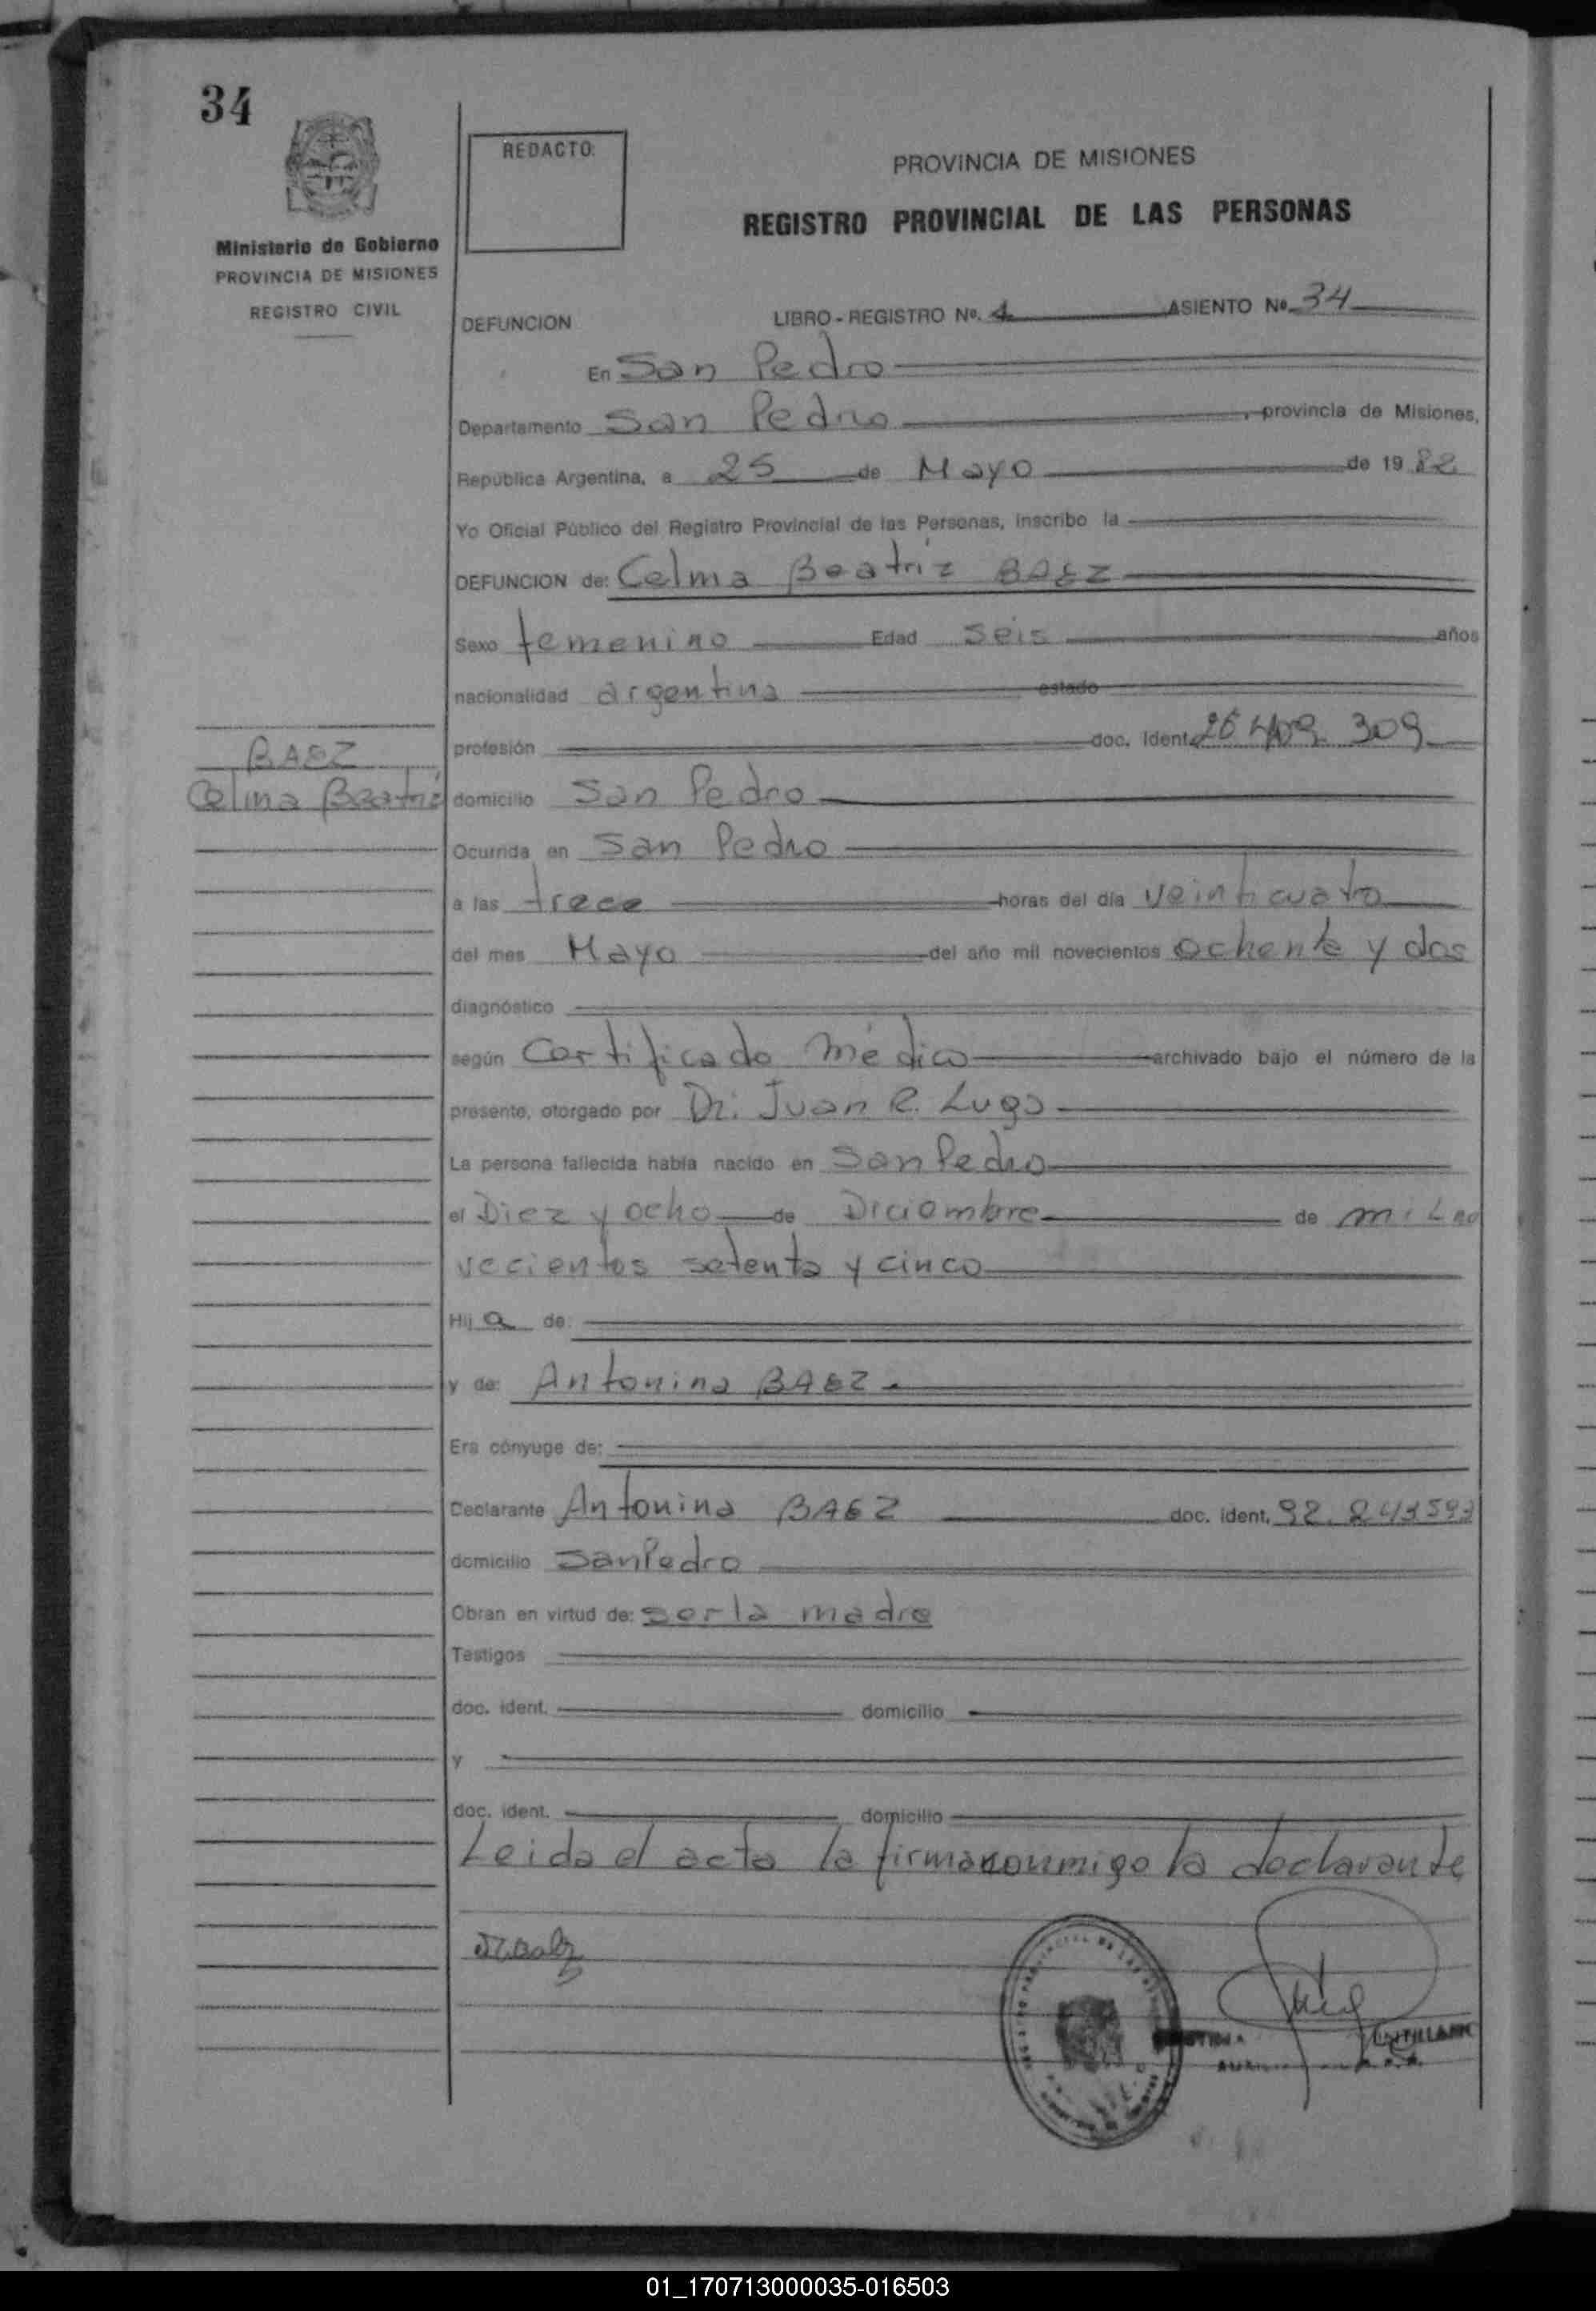 34
REDACTO:
PROVINCIA DE MISIONES
REGISTRO PROVINCIAL DE LAS PERSONAS
Ministerio de Gobierno
PROVINCIA DE MISIONES
REGISTRO CIVIL
DEFUNCION LIBRO - REGISTRO Nº. 1 ASIENTO Nº 34
En San Pedro
Departamento San Pedro, provincia de Misiones,
República Argentina, a 25 de Mayo de 1982
Yo Oficial Público del Registro Provincial de las Personas, inscribo la
DEFUNCION de: Celma Beatriz BAEZ
Sexo femenino Edad seis años
nacionalidad argentina estado
profesión doc. Ident. 309
BAEZ
Celina Beatriz
domicilio San Pedro
Ocurrida en San Pedro
a las trece horas del día veinticuatro
del mes Mayo del año mil novecientos ochenta y dos
diagnóstico
según Certificado Médico archivado bajo el número de la
presente, otorgado por Dr. Juan R. Lugo
La persona fallecida había nacido en San Pedro
el Diez y ocho de Diciembre de mil no
vecientos setenta y cinco
Hija de:
y de: Antonina BAEZ
Era cónyuge de:
Declarante Antonina BAEZ doc. ident. 92.
domicilio San Pedro
Obran en virtud de: ser la madre
Testigos
doc. ident. domicilio
y
doc. ident. domicilio
Leida el acta la firma conmigo la declarante
01_170713000035-016503